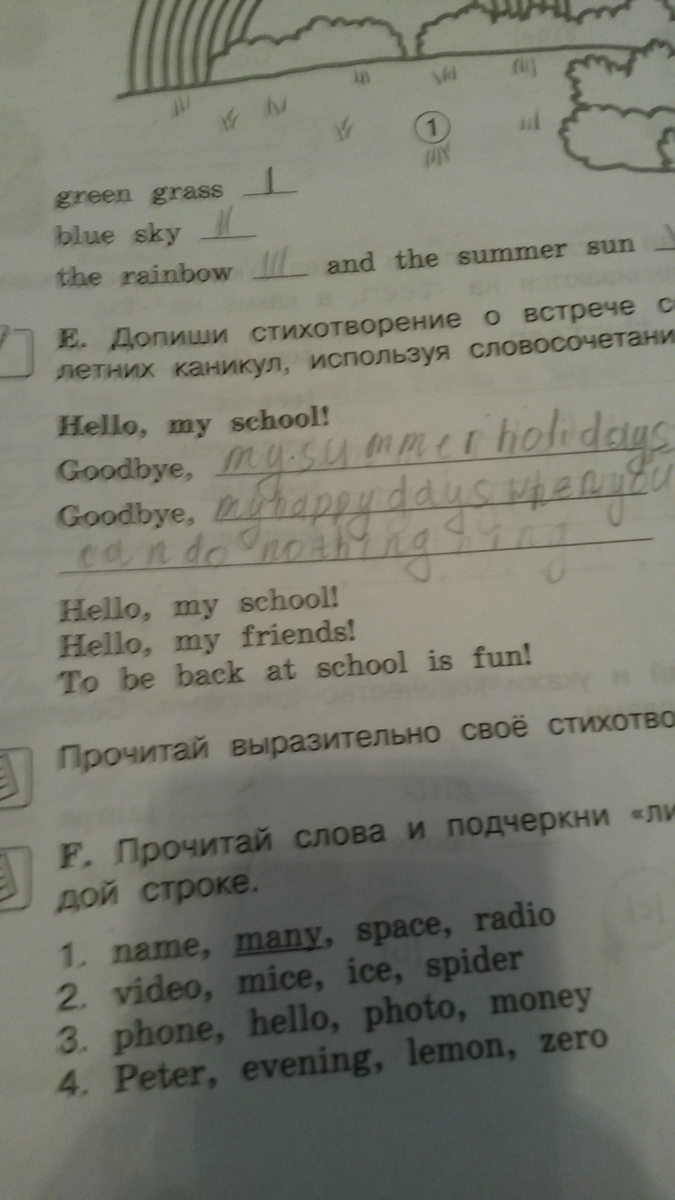 1
green grass I
blue sky II
the rainbow III and the summer sun
E. Допиши стихотворение о встрече с
летних каникул, используя словосочетани
Hello, my school!
Goodbye, my summer holidays
Goodbye, my happy days when you
can do nothing
Hello, my school!
Hello, my friends!
To be back at school is fun!
Прочитай выразительно своё стихотво
F. Прочитай слова и подчеркни «ли
дой строке.
1. name, many, space, radio
2. video, mice, ice, spider
3. phone, hello, photo, money
4. Peter, evening, lemon, zero